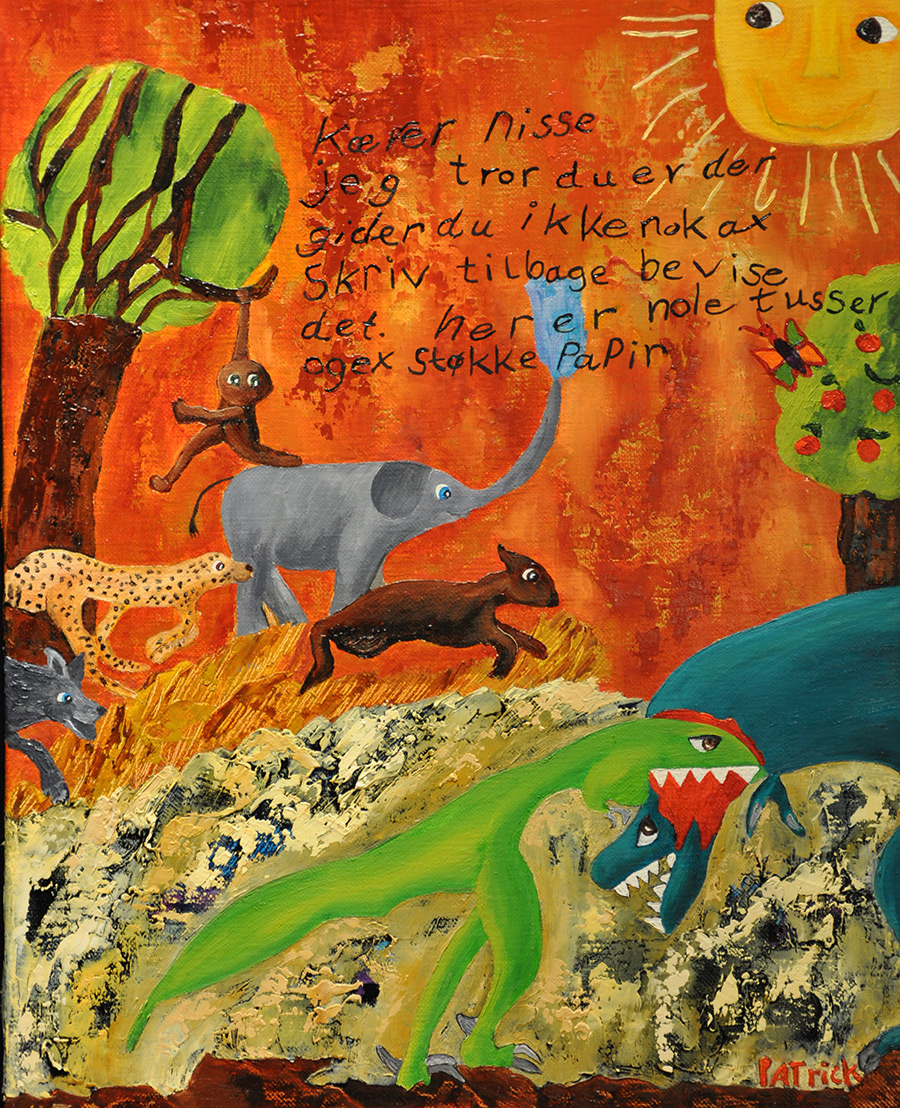 Kærer nisse
jeg tror du er der
gider du ikke nok ax
Skriv tilbage bevise
det. her er nole tusser
og ex støkke PaPir
PATrick